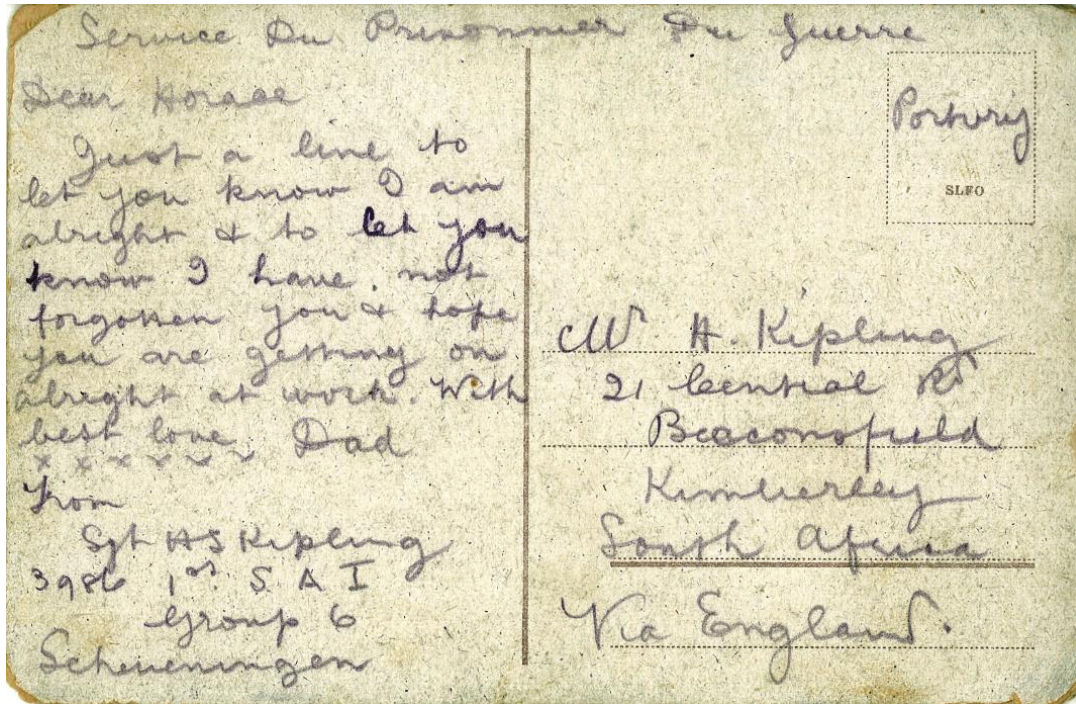 Service Du Prisonnier Du Guerre
Dear Horace
Just a line to
let you know I am
alright & to let you
know I have not
forgotten you & hope
you are getting on
alright at work. With
best love Dad
x x x x x x x
From
Sgt H S Kipling
3986 1st S A I
Group 6
Scheveningen
Portvrij
SLFO
Mr H. Kipling
21 Central Rd
Beaconsfield
Kimberley
South Africa
Via England.